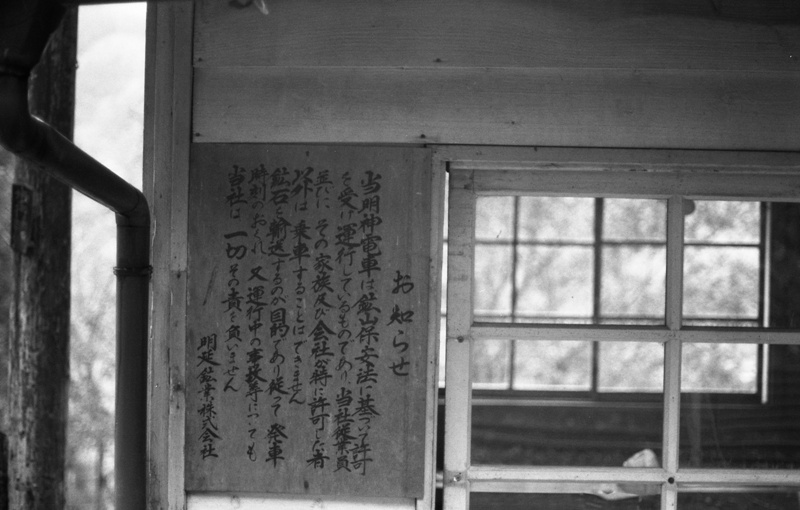 お知らせ
当明神電車は鉱山保安法に基づく許可
を受け運行しているものであり当社従業員
並に、その家族及び会社が特に許可した者
以外は乗車することはできません
鉱石を輸送するのが目的であり従って発車
時刻のおくれ、又運行中の事故等についても
当社は一切その責を負いません
明延鉱業株式会社